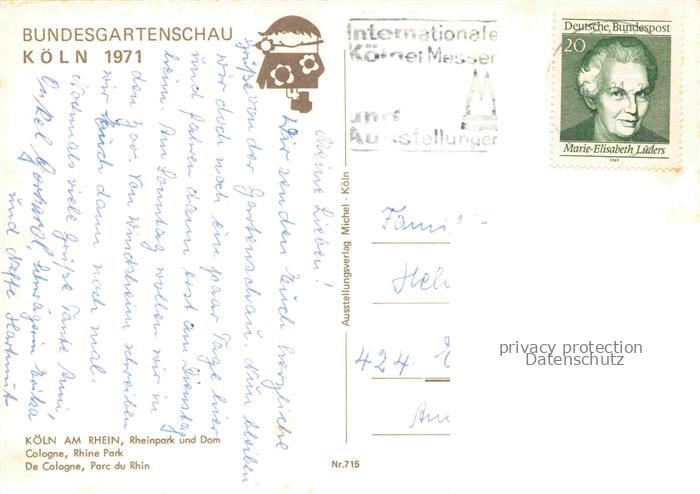 BUNDESGARTENSCHAU
KÖLN 1971
Meine Lieben!
Wir senden Euch herzliche
Grüße von der Gartenschau. Nun bleiben
wir doch noch ein paar Tage hier
und fahren dann erst am Dienstag
heim. Am Sonntag wollen wir in
den Zoo. Von Windsheim schreiben
wir Euch dann noch mal.
Nochmals viele Grüße Tante Anni
Onkel Schwägerin Erika
und Neffe Hartmut
KÖLN AM RHEIN, Rheinpark und Dom
Cologne, Rhine Park
De Cologne, Parc du Rhin
Ausstellungsverlag Michel · Köln
Nr. 715
Internationale
Kölner Messen
und
Ausstellungen
Deutsche Bundespost
20
Marie-Elisabeth Lüders
1969
Famili
Hel
424
Am
privacy protection
Datenschutz